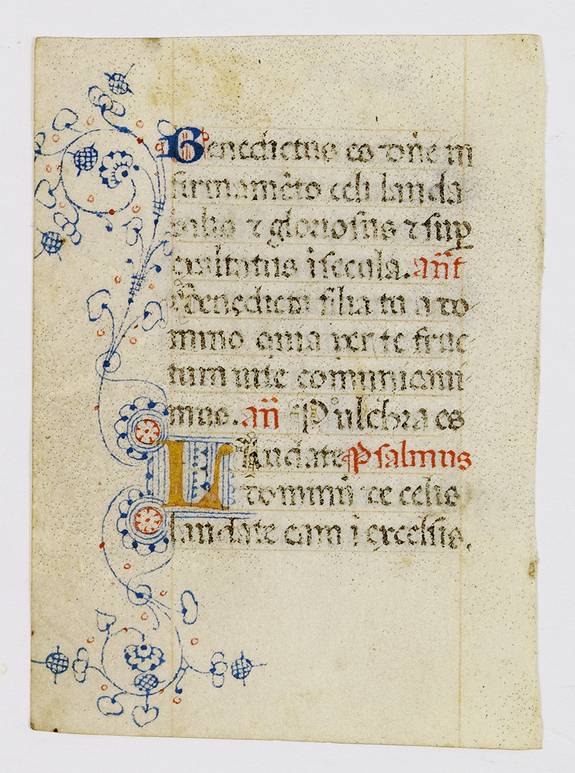 Benedictus es dn̄e in
firmamēto celi lauda
bilis ⁊ gloriosus ⁊ suꝑ
exaltatus ī secula. an̄t
Benedicta filia tu a do
mino quia per te fruc
tum vite comunicaui
mus. an̄ Pulchra es
Laudate Psalmus
dominū de celis
laudate eum ī excelsis.